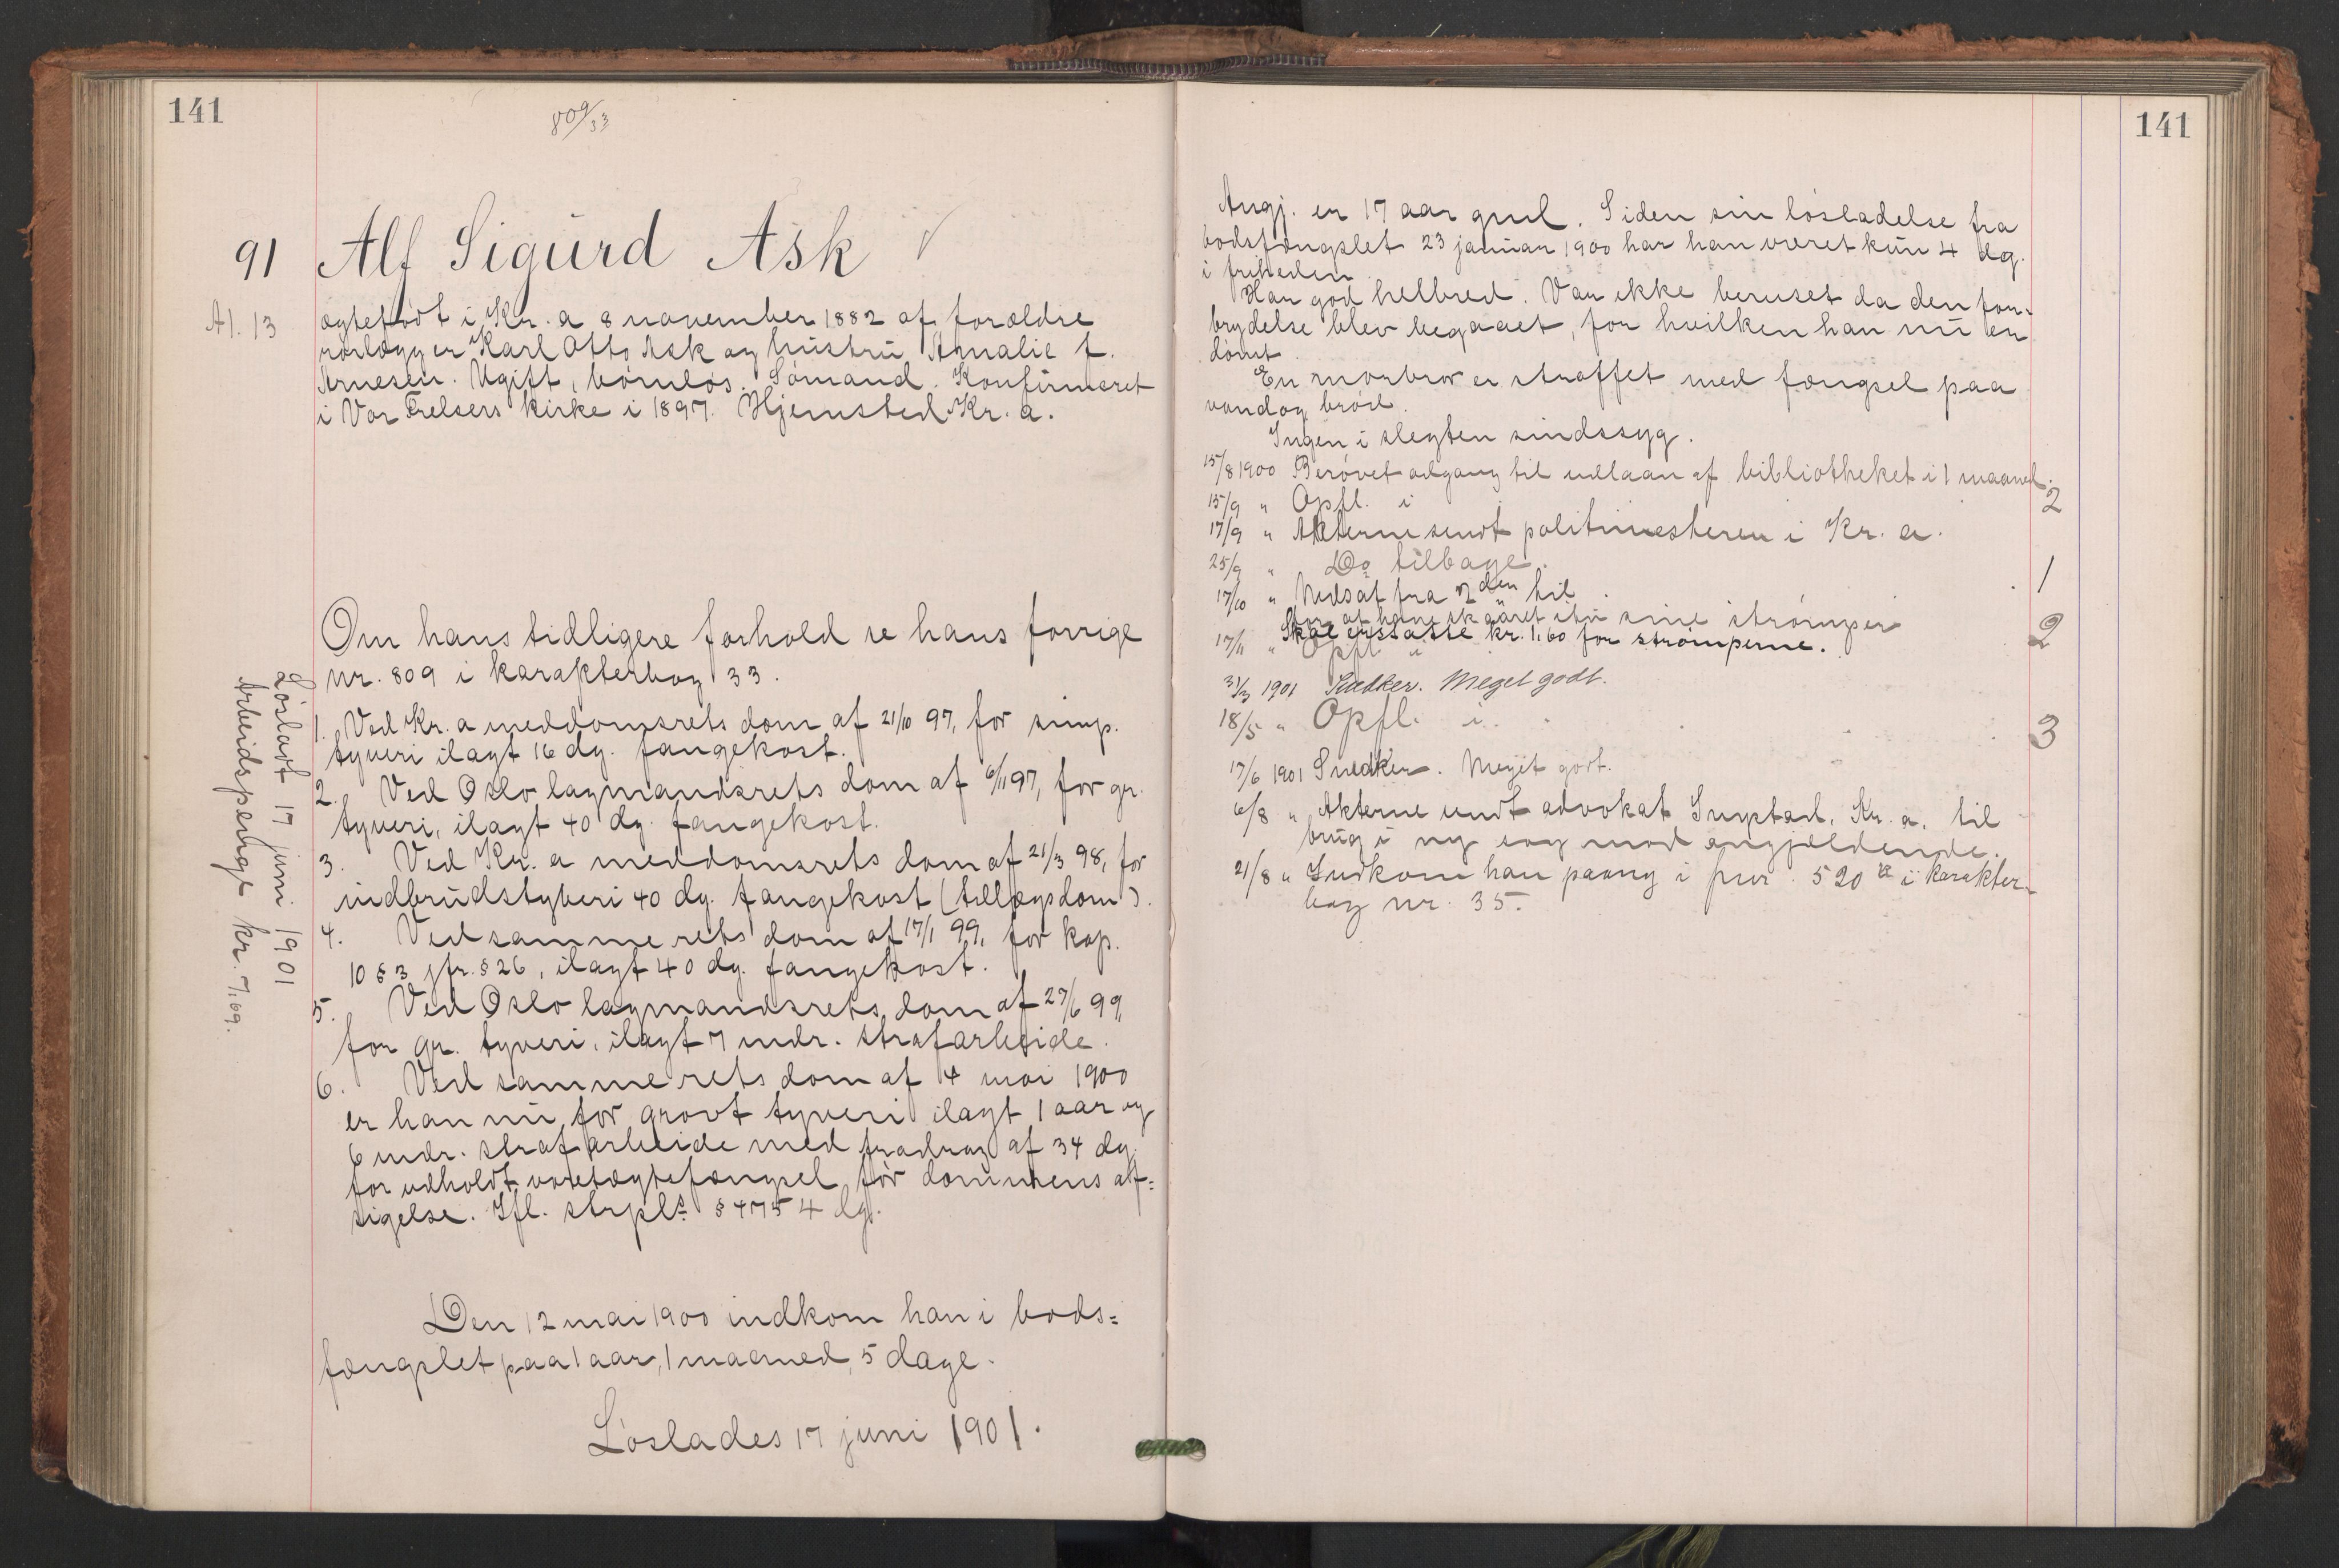 141
809/33
91 Alf Sigurd Ask √
Al. 13
ægtefødt i Kr.a 8 november 1882 af forældre
rørlægger Karl Otto Ask og hustru Amalie f.
Arnesen. Ugift, børnløs. Sømand. Konfirmeret
i Vor Frelsers kirke i 1897. Hjemsted Kr.a.
Om hans tidligere forhold se hans forrige
nr. 809 i karakterbog 33.
1. Ved Kr.a meddomsrets dom af 21/10 97, for simp.
tyveri ilagt 16 dg. fangekost.
2. Ved Oslo lagmandsrets dom af 6/11 97, for gr.
tyveri, ilagt 40 dg. fangekost.
3. Ved Kr.a meddomsrets dom af 21/3 98, for
indbrudstyveri 40 dg. fangekost (tillægsdom).
4. Ved samme rets dom af 17/1 99, for kap.
10 § 3 jfr. § 26, ilagt 40 dg. fangekost.
5. Ved Oslo lagmandsrets dom af 27/6 99,
for gr. tyveri, ilagt 7 mdr. strafarbeide.
6. Ved samme rets dom af 4 mai 1900
er han nu for grovt tyveri ilagt 1 aar og
6 mdr. strafarbeide med fradrag af 34 dg.
for udholdt varetægtsfængsel før dommens af-
sigelse. Ifl. strpls § 475 4 dg.
Den 12 mai 1900 indkom han i bods-
fængslet paa 1 aar, 1 maaned, 5 dage.
Løslades 17 juni 1901.
Løsladt 17 juni 1901
Arbeidspenge kr. 7,69.
141
Angj. er 17 aar gml. Siden sin løsladelse fra
bodsfængslet 23 januar 1900 har han været kun 4 dg.
i friheden.
Har god helbred. Var ikke beruset da den for-
brydelse blev begaaet, for hvilken han nu er
dømt.
En morbror er straffet med fængsel paa
vand og brød.
Ingen i slegten sindssyg.
15/8 1900 Berøvet adgang til udlaan af bibliotheket i 1 maaned.
15/9 " Opfl. i 2
17/9 " Akterne sendt politimesteren i Kr.a.
25/9 " Do tilbage.
17/10 " Nedsat fra 2den til 1
for at have skaaret itu sine strømper
Skal erstatte kr. 1,60 for strømperne.
17/11 " Opfl. i 2
31/3 1901 Snedker. Meget godt.
18/5 " Opfl. i 3
17/6 1901 Snedker. Meget godt.
6/8 " Akterne sendt advokat Kr.a. til
brug i ny sag mod angjældende.
21/8 " Indkom han paany i 520 i karakter-
bog nr. 35.